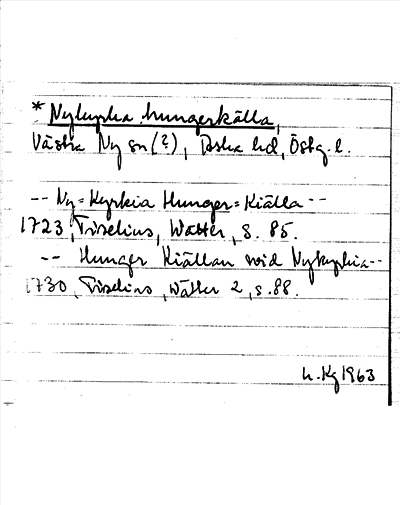 * Nykyrka hungerkälla,
Västra Ny sn (?), Aska hd, Östg. l.
-- Ny=Kyrkia Hunger=Kiälla --
1723, Tiselius, Watter, S. 85.
-- Hunger Kiällan wid Nykyrkia --
1730, Tiselius, Wätter 2, s. 88.
h. Kg 1963